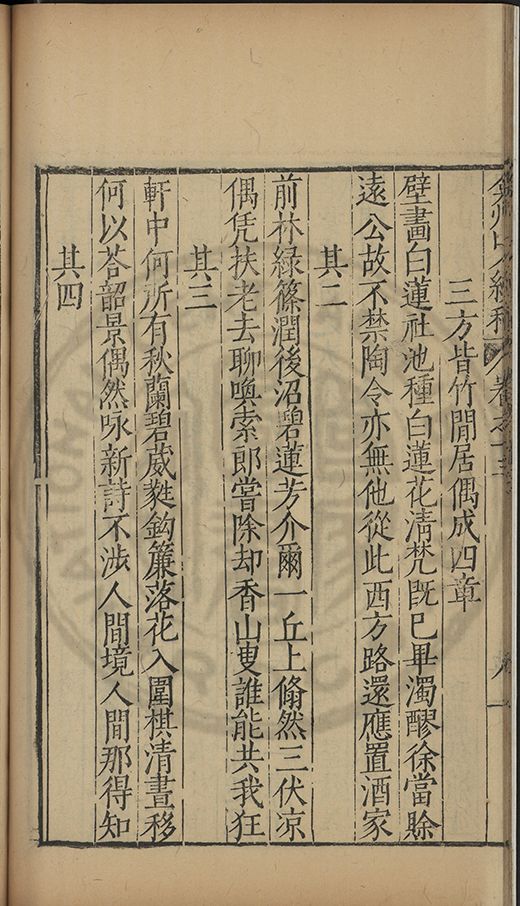 弇州山人續稿 卷之十三
三方皆竹閒居偶成四章
壁畫白蓮社池種白蓮花清梵既已畢濁醪徐當賒
遠公故不禁陶令亦無他從此西方路還應置酒家
其二
前林綠篠潤後沼碧蓮芳介爾一丘上翛然三伏凉
偶凭扶老去聊喚索郎嘗除却香山叟誰能共我狂
其三
軒中何所有秋蘭碧葳蕤鈎簾落花入圍棋清晝移
何以荅韶景偶然咏新詩不涉人間境人間那得知
其四